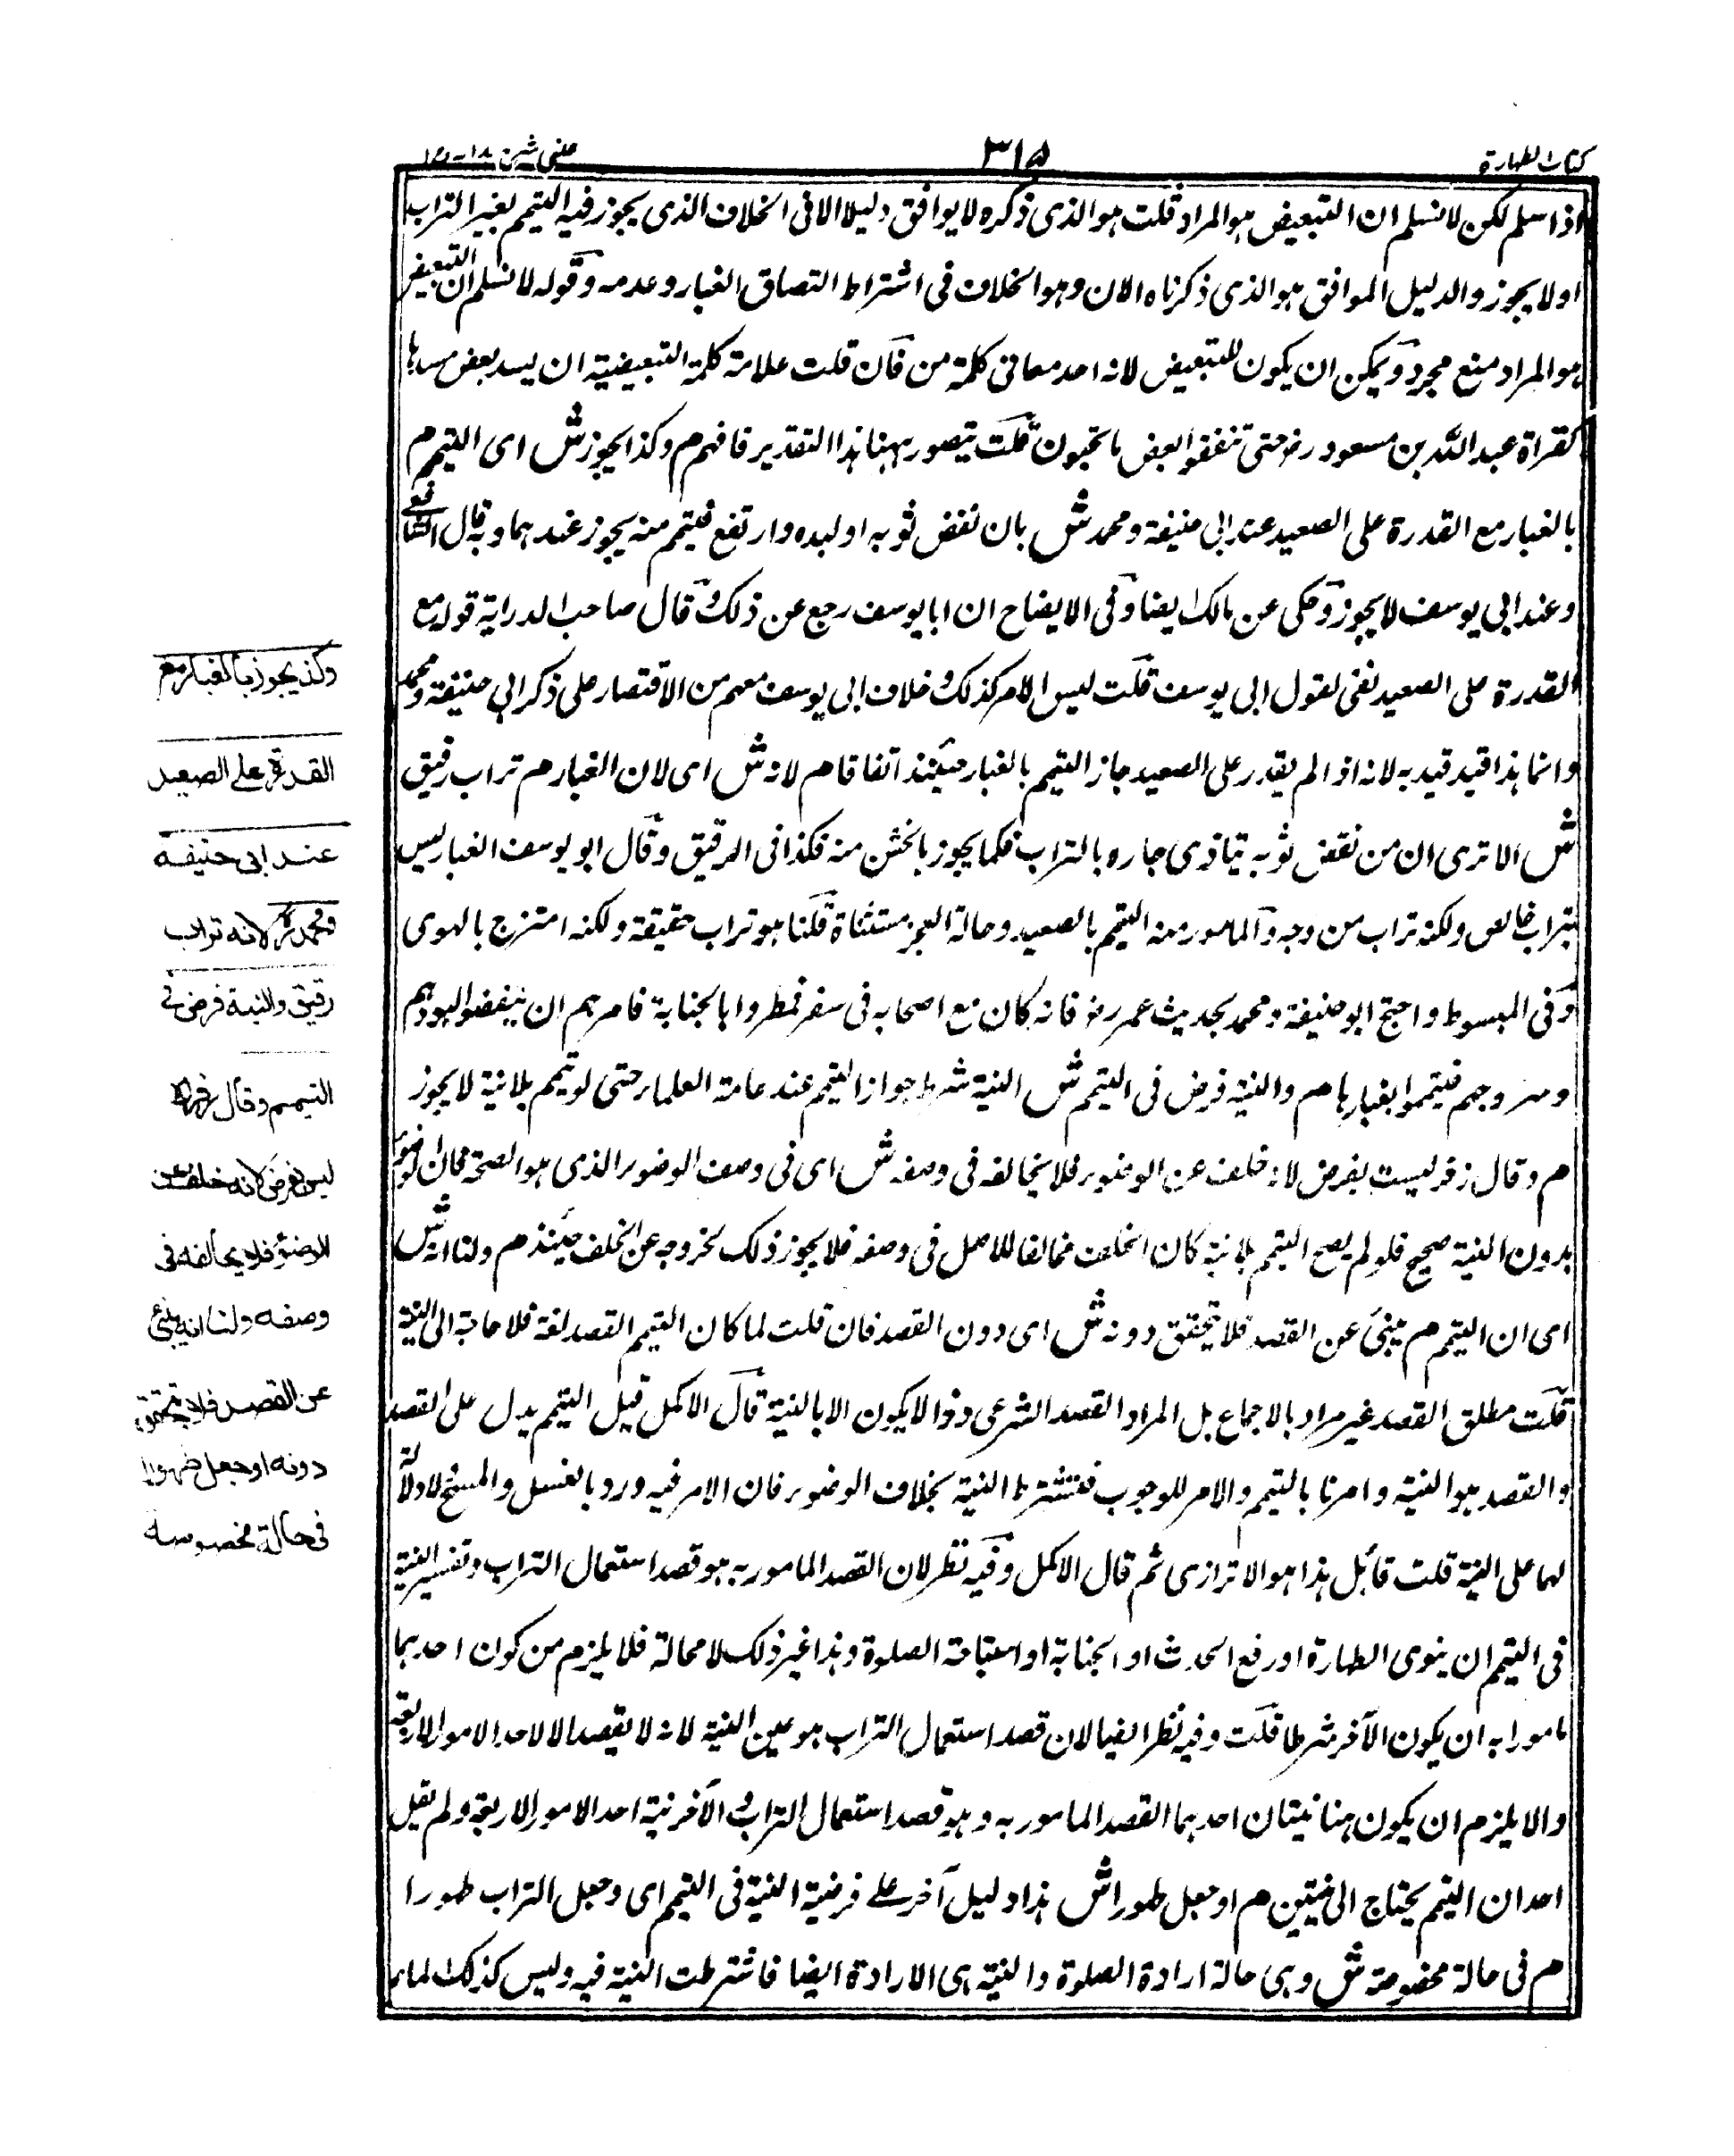 كتاب الطهارة
٣١٥
عيني شرح هداية
اذا سلم لكن لا نسلم ان التبعيض هو المراد قلت هو الذى ذكره لا يوافق دليلا الا فى الخلاف الذى يجوز فيه التيمم بغير التراب
او لا يجوز والدليل الموافق هو الذى ذكرناه الان وهو الخلاف فى اشتراط التصاق الغبار وعدمه وقوله لا نسلم ان التبعيض
هو المراد منع مجرد ويمكن ان يكون للتبعيض لانه احد معانى كلمة من فان قلت علامة كلمة التبعيضية ان يسد بعض مسدها
كقراة عبد الله بن مسعود رض حتى تنفقوا بعض ما تحبون قلت يتصور ههنا هذا التقدير فافهم م وكذا يجوز ش اى التيمم م
بالغبار مع القدرة على الصعيد عند ابى حنيفة ومحمد ش بان نفض ثوبه او لبده وارتفع فيتيمم منه يجوز عندهما وبه قال الشافعى
وعند ابى يوسف لا يجوز وحكى عن مالك ايضا وفى الايضاح ان ابا يوسف رجع عن ذلك وقال صاحب الدراية قوله مع
القدرة على الصعيد نفى لقول ابى يوسف قلت ليس الامر كذلك وخلاف ابى يوسف معهم من الاقتصار على ذكر ابى حنيفة ومحمد
وانما هذا قيد قيد به لانه اذا لم يقدر على الصعيد جاز التيمم بالغبار حينئذ اتفاقا م لانه ش اى لان الغبار م تراب رقيق
ش الا ترى ان من نفض ثوبه يتاذى جاره بالتراب فكما يجوز بالخشن منه فكذا فى الرقيق وقال ابو يوسف الغبار ليس
بتراب خالص ولكنه تراب من وجه والمامور منه التيمم بالصعيد وحالة العجز مستثناة قلنا هو تراب حقيقة ولكنه امتزج بالهوى
وفى المبسوط واحتج ابو حنيفة ومحمد بحديث عمر رض فانه كان مع اصحابه فى سفر فمطروا بالجنابة فامرهم ان ينفضوا لبودهم
وسروجهم فيتيمموا بغبارها م والنية فرض فى التيمم ش النية شرط جواز التيمم عند عامة العلماء حتى لو تيمم بلا نية لا يجوز
م وقال زفر ليست بفرض لانه خلف عن الوضوء فلا يخالفه فى وصفه ش اى فى وصف الوضوء الذى هو الصحة فكان الوضوء
بدون النية صحيح فلو لم يصح التيمم بلا نية كان الخلف مخالفا للاصل فى وصفه فلا يجوز ذلك لخروجه عن الخلف حينئذ م ولنا انه ش
اى ان التيمم م ينبئ عن القصد فلا يتحقق دونه ش اى دون القصد فان قلت لما كان التيمم القصد لغة فلا حاجة الى النية
قلت مطلق القصد غير مراد بالاجماع بل المراد القصد الشرعى وذا لا يكون الا بالنية قال الاكمل قيل التيمم يدل على القصد
والقصد هو النية وامرنا بالتيمم والامر للوجوب فتشترط النية بخلاف الوضوء فان الامر فيه ورد بالغسل والمسح لا دلالة
لهما على النية قلت قائل هذا هو الاترازى ثم قال الاكمل وفيه نظر لان القصد المامور به هو قصد استعمال التراب وتفسير النية
فى التيمم ان ينوى الطهارة او رفع الحدث او الجنابة او استباحة الصلوة وهذا غير ذلك لا محالة فلا يلزم من كون احدهما
مامورا به ان يكون الآخر شرطا قلت وفيه نظر ايضا لان قصد استعمال التراب هو عين النية لانه لا يقصد الا لاحد الامور الاربعة
والا يلزم ان يكون هنا نيتان احدهما القصد المامور به وهو قصد استعمال التراب والآخر نية احد الامور الاربعة ولم يقل
احد ان التيمم يحتاج الى نيتين م او جعل طهورا ش هذا دليل آخر على فرضية النية فى التيمم اى وجعل التراب طهورا
م فى حالة مخصوصة ش وهى حالة ارادة الصلوة والنية هى الارادة ايضا فاشترطت النية فيه وليس كذلك الماء
وكذا يجوز بالغبار مع
القدرة على الصعيد
عند ابى حنيفة
ومحمد لانه تراب
رقيق والنية فرض فى
التيمم وقال زفر
ليس بفرض لانه خلف عن
الوضوء فلا يخالفه فى
وصفه ولنا انه ينبئ
عن القصد فلا يتحقق
دونه او جعل طهورا
فى حالة مخصوصة